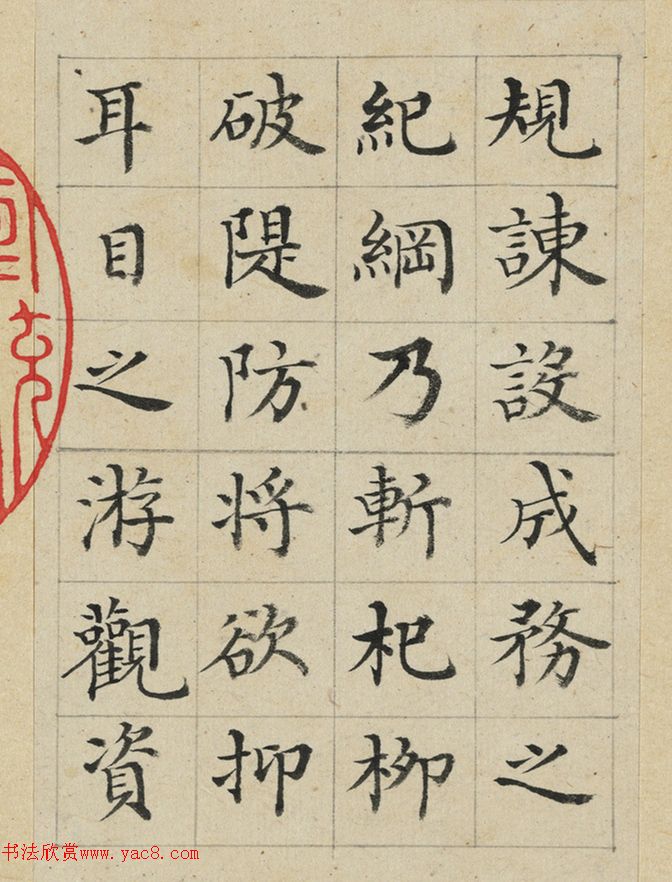 規諌設成務之
紀綱乃斬杞柳
破隄防将欲抑
耳目之游觀資
书法欣赏www.yac8.com